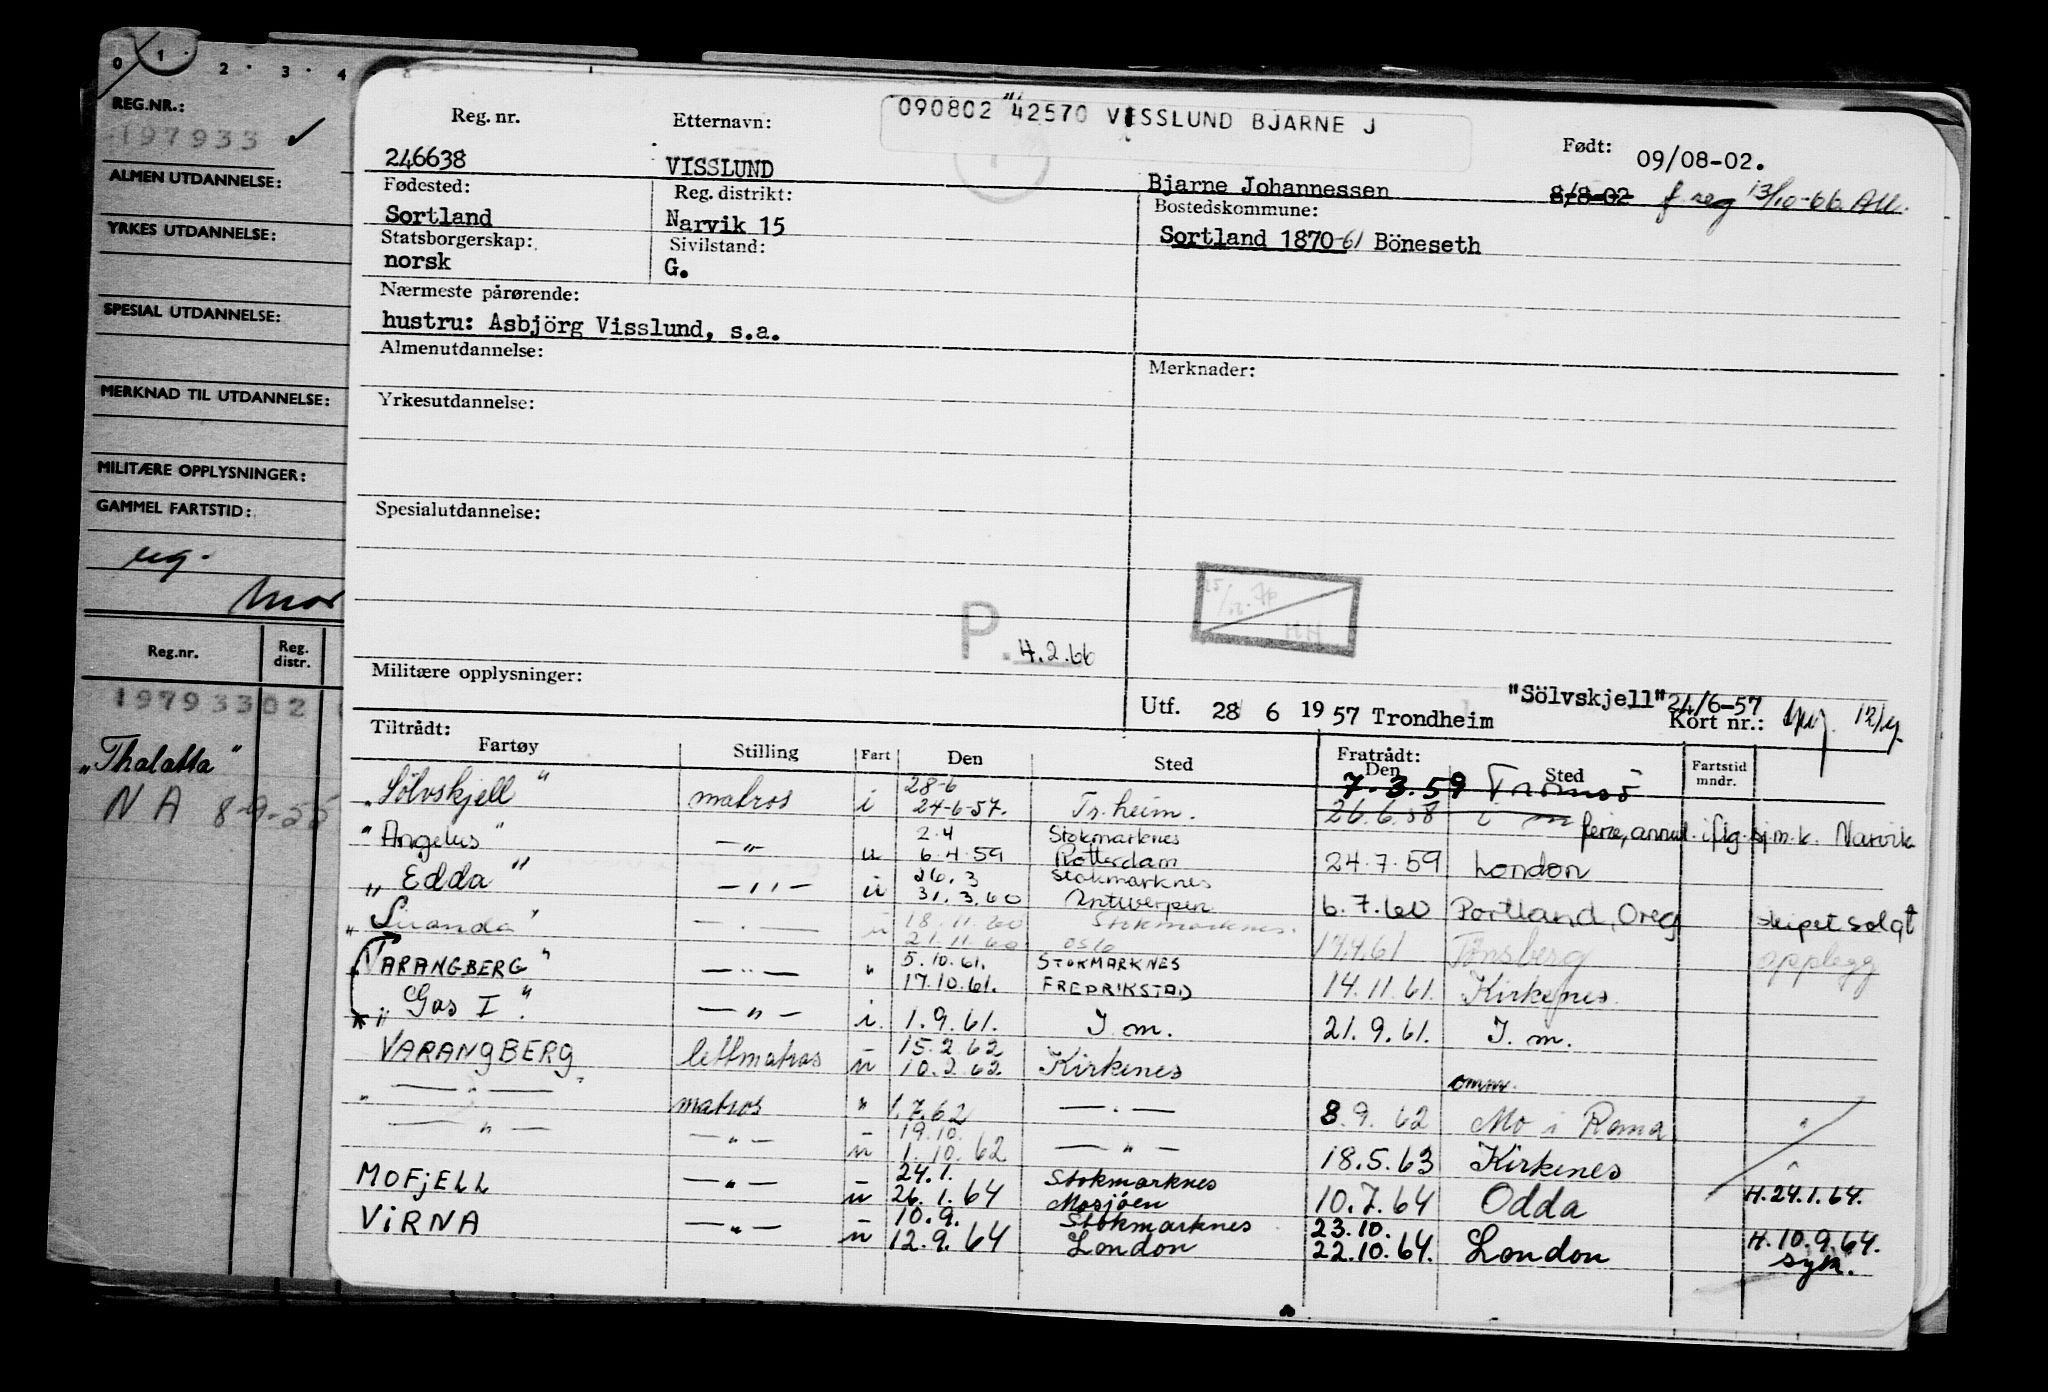 0 1 · 2 · 3 · 4 ·
REG.NR.:
197933 ✓
ALMEN UTDANNELSE:
YRKES UTDANNELSE:
SPESIAL UTDANNELSE:
MERKNAD TIL UTDANNELSE:
MILITÆRE OPPLYSNINGER:
GAMMEL FARTSTID:
Reg.nr. Reg. distr.
19793302
"Thalatta"
N A 8-9-55
090802 42570 VISSLUND BJARNE J
Reg. nr. Etternavn: Født:
246638 VISSLUND Bjarne Johannessen 09/08-02.
8/8-02 f. reg 13/10-66 AU.
Fødested: Reg. distrikt: Bostedskommune:
Sortland Narvik 15 Sortland 1870-61 Böneseth
Statsborgerskap: Sivilstand:
norsk G.
Nærmeste pårørende:
hustru: Asbjörg Visslund, s.a.
Almenutdannelse: Merknader:
Yrkesutdannelse:
Spesialutdannelse:
P. 4.2.66
HH
Militære opplysninger:
Utf. 28 6 1957 Trondheim "Sölvskjell" 24/6-57
Kort nr.:
Tiltrådt: Fratrådt:
Fartøy Stilling Fart Den Sted Den Sted Fartstid mndr.
28-6 7.3.59 Tromsö
"Sölvskjell" matros i 24-6-57. Tr.heim. 26.6.58 i
2.4 Stokmarknes ferie, annul. iflg. sj.m.k. Narvik
"Angelus" —"— u 6.4.59 Rotterdam 24.7.59 London
26.3 Stokmarknes
"Edda" —"— ü 31.3.60 Antwerpen 6.7.60 Portland, Oreg skipet solgt
18.11.60 Stokmarknes.
"Luanda" —"— u 21.11.60 Oslo 17.4.61 Tønsberg opplegg
5.10.61. STOKMARKNES
"VARANGBERG" —"— " 17.10.61. FREDRIKSTAD 14.11.61. Kirkenes.
"Gas I". —"— i. 1.9.61. I m. 21.9.61. I. m.
15.2 62
VARANGBERG lettmatros ü 10.2 62. Kirkenes omm.
—"— matros " 1.7.62 —"— 8.9.62 Mo i Rana "
19.10.
—"— —"— ü 1.10.62 —"— 18.5.63 Kirkenes
24.1. Stokmarknes
MOFJELL —"— ü 26.1.64 Mosjöen 10.7.64 Odda H.24.1.64.
10.9. Stokmarknes 23.10. H.10.9.64.
VIRNA —"— ü 12.9.64 London 22.10.64. London syk.